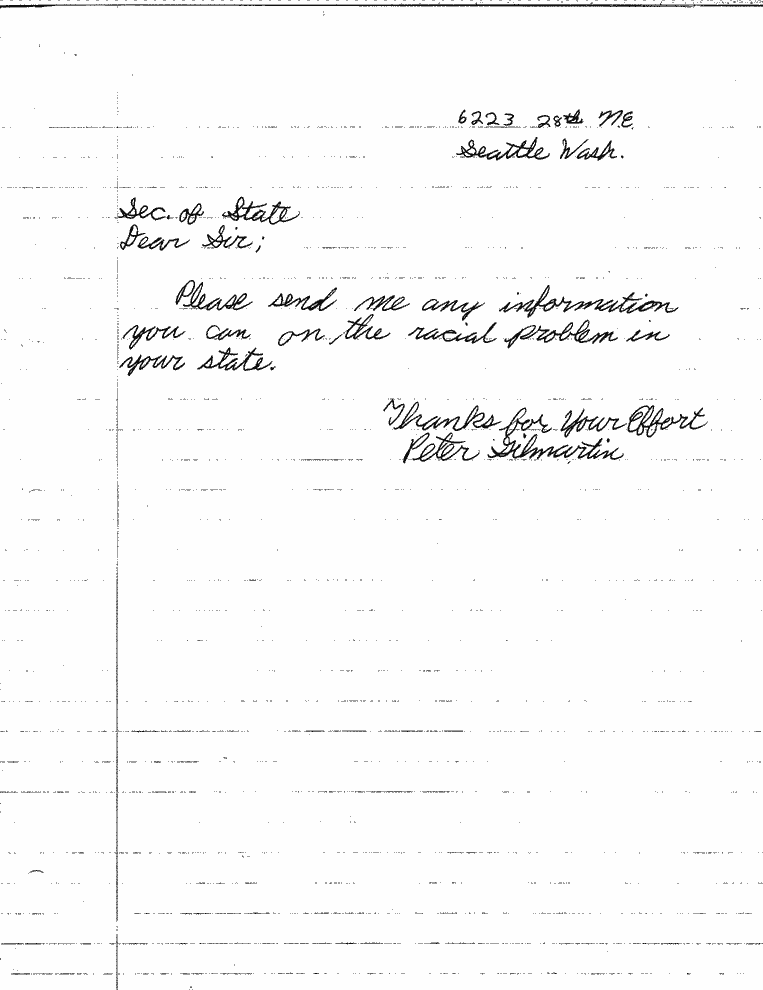 6223 28th N.E.
Seattle Wash.
Sec. of State
Dear Sir;
Please send me any information
you can on the racial problem in
your state.
Thanks for Your Effort
Peter Gilmartin